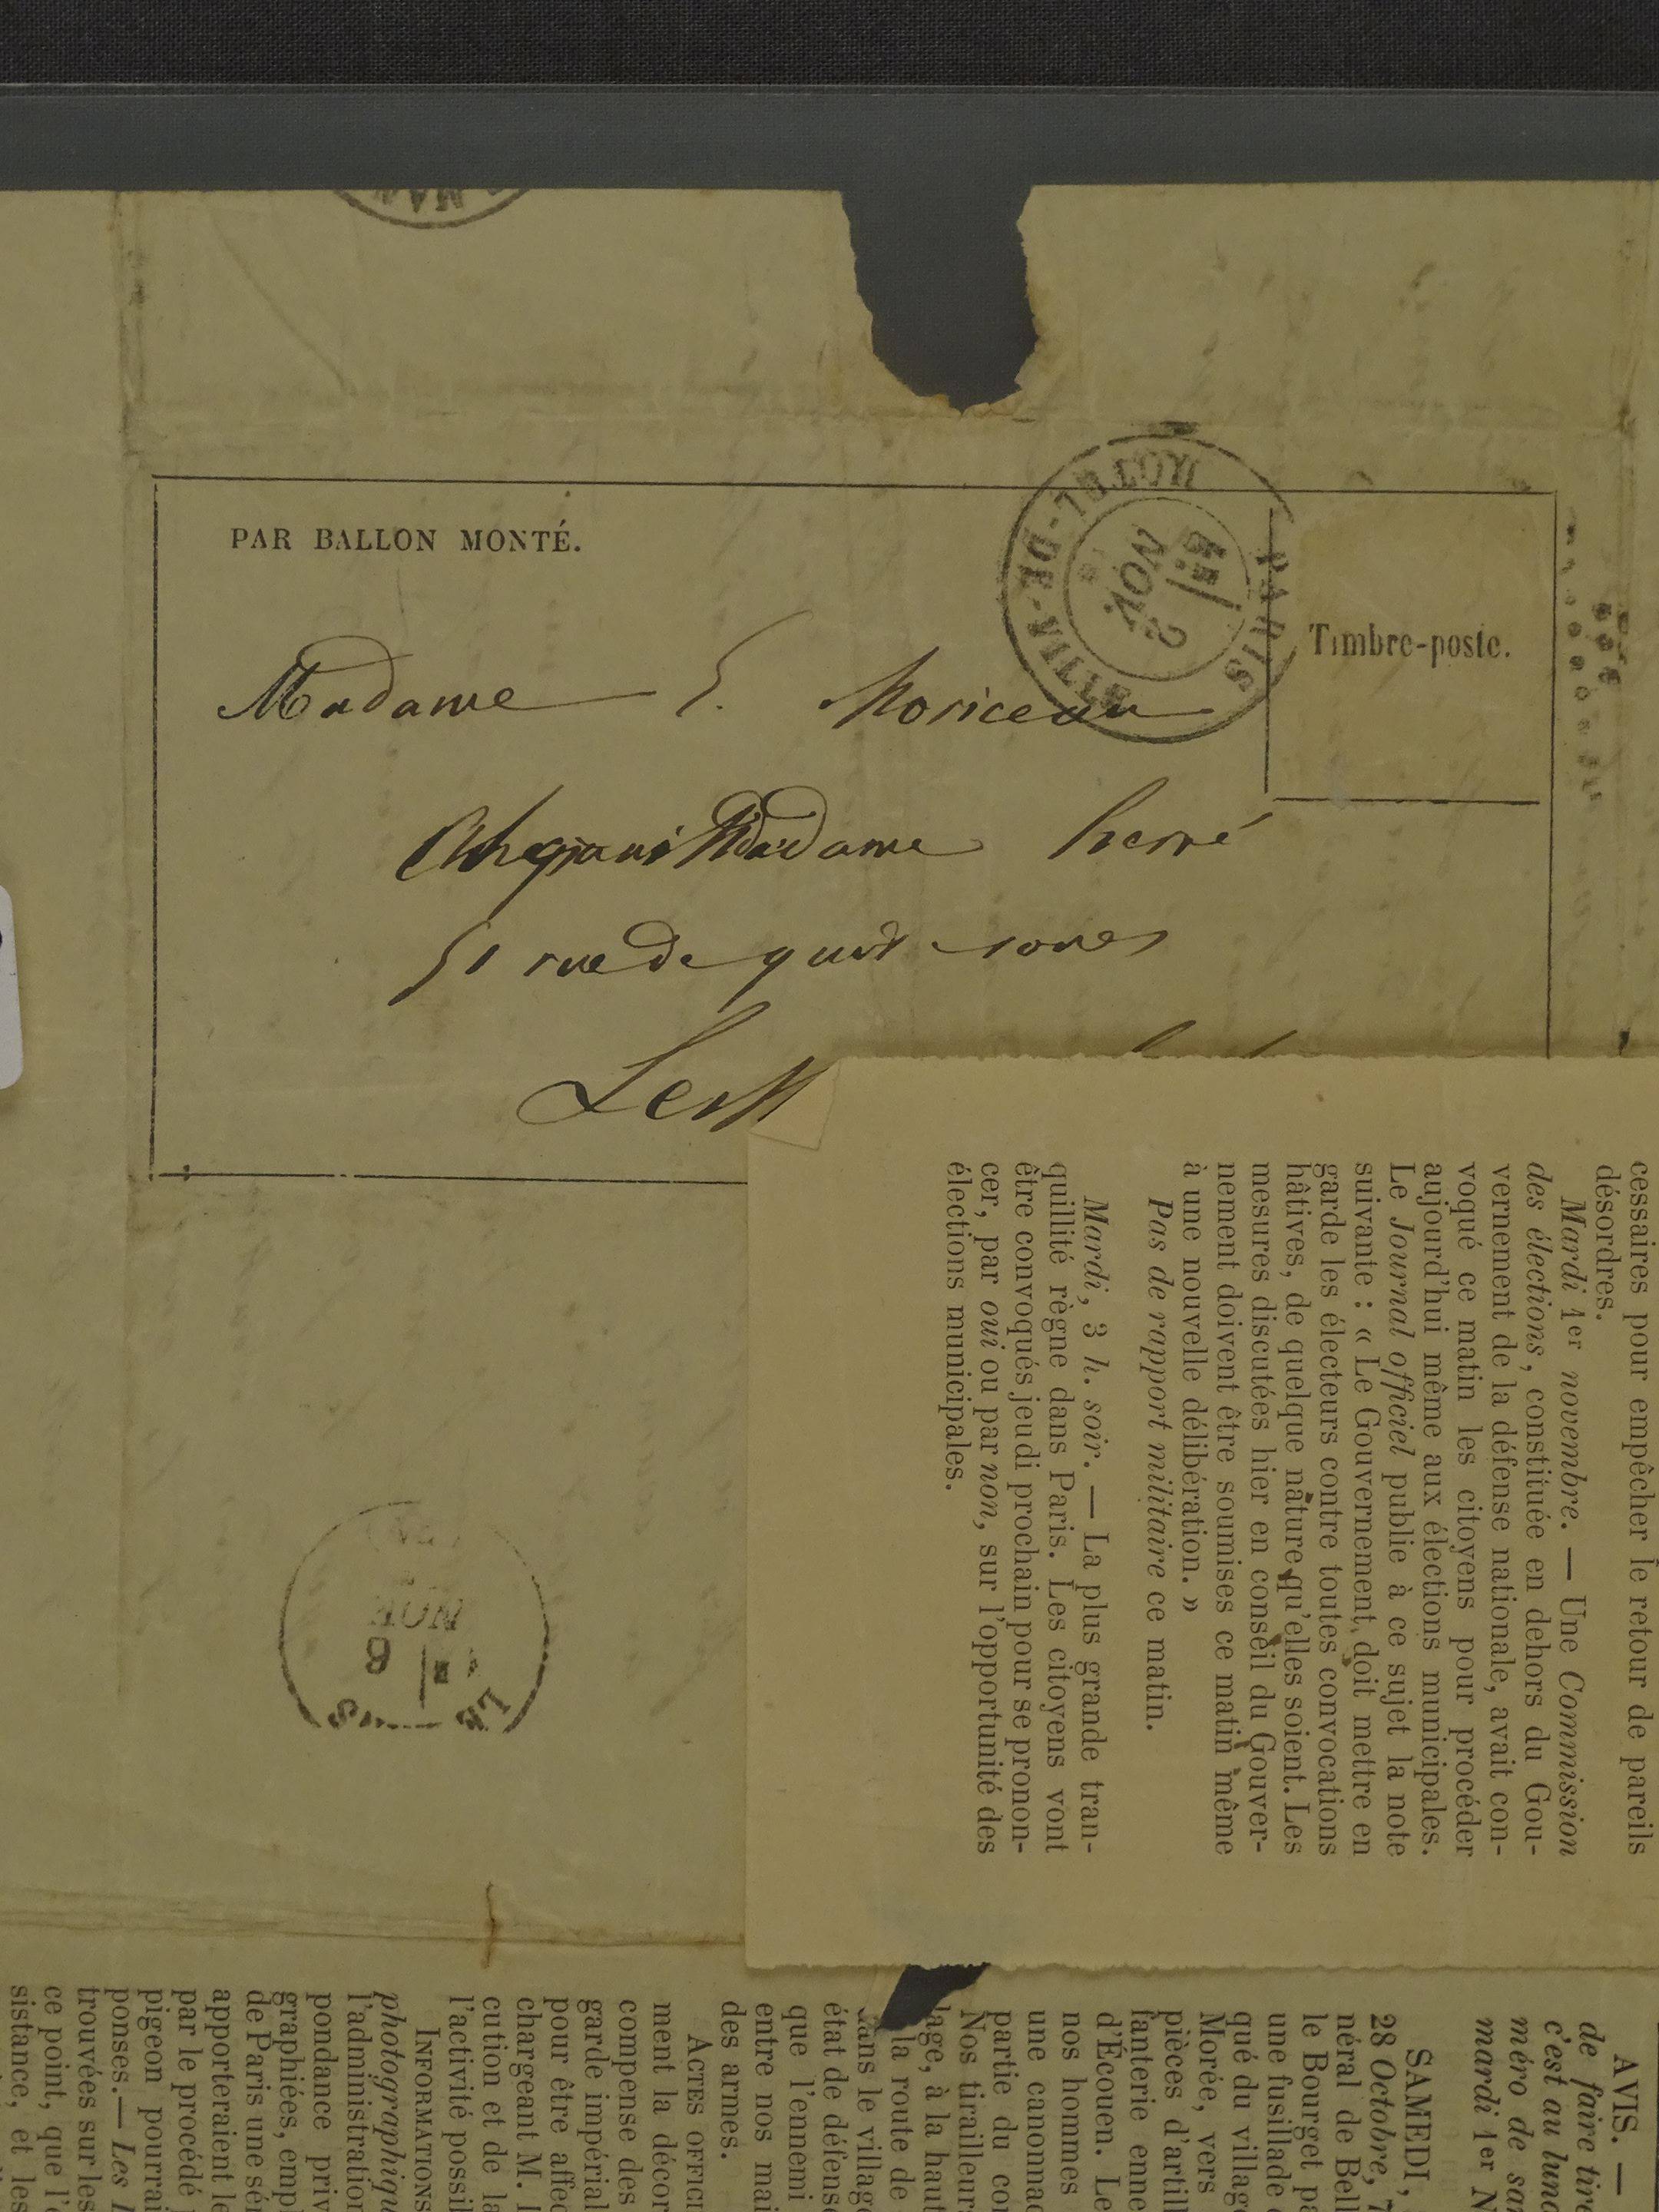 PAR BALLON MONTÉ.
PARIS
HOTEL-DE-VILLE
2
NOV.
Timbre-poste.
Madame S. Moriceau
Madame hervé
51 rue de
NOV
LE
cessaires pour empêcher le retour de pareils
désordres.
Mardi 1er novembre. — Une Commission
des élections, constituée en dehors du Gou-
vernement de la défense nationale, avait con-
voqué ce matin les citoyens pour procéder
aujourd'hui même aux élections municipales.
Le Journal officiel publie à ce sujet la note
suivante : « Le Gouvernement doit mettre en
garde les électeurs contre toutes convocations
hâtives, de quelque nature qu'elles soient. Les
mesures discutées hier en conseil du Gouver-
nement doivent être soumises ce matin même
à une nouvelle délibération. »
Pas de rapport militaire ce matin.
Mardi, 3 h. soir. — La plus grande tran-
quillité règne dans Paris. Les citoyens vont
être convoqués jeudi prochain pour se pronon-
cer, par oui ou par non, sur l'opportunité des
élections municipales.
AVIS. —
de faire tir
c'est au lun
méro de sa
mardi 1er N
SAMEDI,
28 Octobre, 7
néral de Bell
le Bourget pa
une fusillade
qué du villag
Morée, vers
pièces d'artill
fanterie enne
d'Écouen. Le
nos hommes
une canonnad
partie du co
Nos tirailleur
lage, à la haut
la route de
dans le villag
état de défens
que l'ennemi
entre nos mai
des armes.
ACTES OFFICI
ment la décor
compense des
garde impérial
pour être affec
chargeant M. 
cution et de la
l'activité possil
INFORMATIONS
photographiqu
l'administration
pondance priv
graphiées, empl
de Paris une sér
apporteraient le
par le procédé
pigeon pourrai
ponses. — Les
trouvées sur les
ce point, que l'
sistance, et les